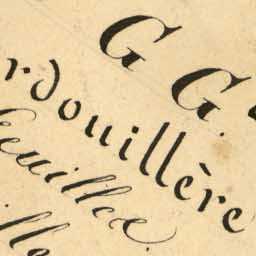 G G.
rdouillère
feuillea.
ille